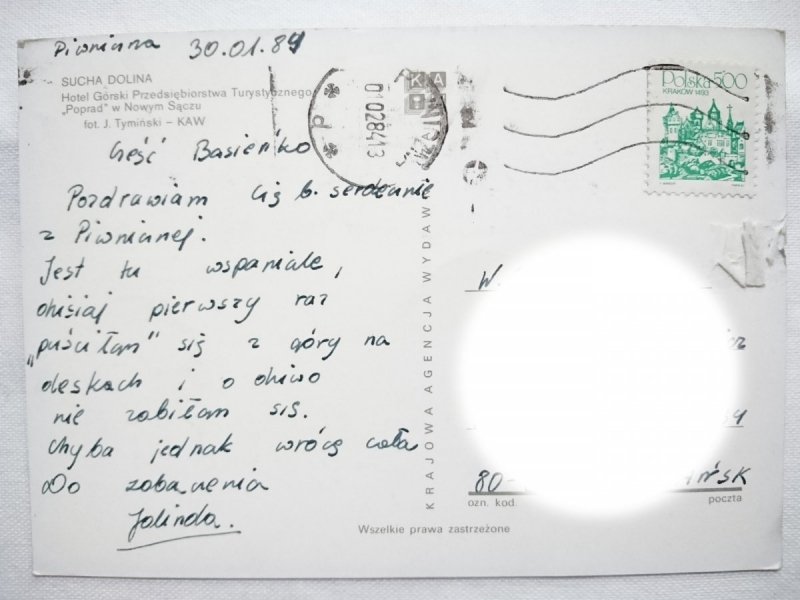 Piwniczna 30.01.84
SUCHA DOLINA
Hotel Górski Przedsiębiorstwa Turystycznego
„Poprad" w Nowym Sączu
fot. J. Tymiński – KAW
Cześć Basieńko
Pozdrawiam Cię b. serdecznie
z Piwnicznej.
Jest tu wspaniale,
dzisiaj pierwszy raz
„puściłam" się z góry na
deskach i o dziwo
nie zabiłam się.
Chyba jednak wrócę cała
Do zobaczenia
Jolinda.
KRAJOWA AGENCJA WYDAW
KA
010284-13
Polska 500
KRAKÓW 1493
W.
80-
ŃSK
ozn. kod. poczta
Wszelkie prawa zastrzeżone